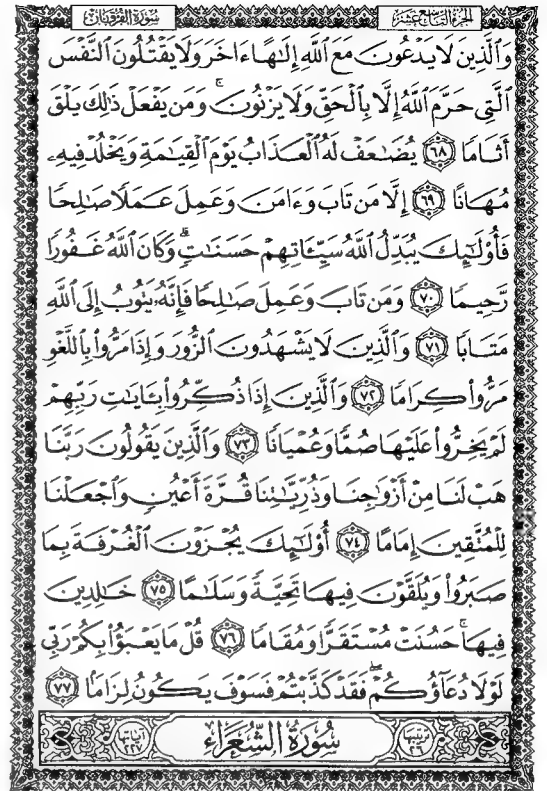 الجزء التاسع عشر
سورة الفرقان
وَالَّذِينَ لَا يَدْعُونَ مَعَ اللَّهِ إِلَٰهًا ءَاخَرَ وَلَا يَقْتُلُونَ النَّفْسَ
الَّتِي حَرَّمَ اللَّهُ إِلَّا بِالْحَقِّ وَلَا يَزْنُونَ ۚ وَمَن يَفْعَلْ ذَٰلِكَ يَلْقَ
أَثَامًا ٦٨ يُضَٰعَفْ لَهُ الْعَذَابُ يَوْمَ الْقِيَٰمَةِ وَيَخْلُدْ فِيهِۦ
مُهَانًا ٦٩ إِلَّا مَن تَابَ وَءَامَنَ وَعَمِلَ عَمَلًا صَٰلِحًا
فَأُو۟لَٰٓئِكَ يُبَدِّلُ اللَّهُ سَيِّـَٔاتِهِمْ حَسَنَٰتٍ ۗ وَكَانَ اللَّهُ غَفُورًا
رَّحِيمًا ٧٠ وَمَن تَابَ وَعَمِلَ صَٰلِحًا فَإِنَّهُۥ يَتُوبُ إِلَى اللَّهِ
مَتَابًا ٧١ وَالَّذِينَ لَا يَشْهَدُونَ الزُّورَ وَإِذَا مَرُّوا۟ بِاللَّغْوِ
مَرُّوا۟ كِرَامًا ٧٢ وَالَّذِينَ إِذَا ذُكِّرُوا۟ بِـَٔايَٰتِ رَبِّهِمْ
لَمْ يَخِرُّوا۟ عَلَيْهَا صُمًّا وَعُمْيَانًا ٧٣ وَالَّذِينَ يَقُولُونَ رَبَّنَا
هَبْ لَنَا مِنْ أَزْوَٰجِنَا وَذُرِّيَّٰتِنَا قُرَّةَ أَعْيُنٍ وَاجْعَلْنَا
لِلْمُتَّقِينَ إِمَامًا ٧٤ أُو۟لَٰٓئِكَ يُجْزَوْنَ الْغُرْفَةَ بِمَا
صَبَرُوا۟ وَيُلَقَّوْنَ فِيهَا تَحِيَّةً وَسَلَٰمًا ٧٥ خَٰلِدِينَ
فِيهَا ۚ حَسُنَتْ مُسْتَقَرًّا وَمُقَامًا ٧٦ قُلْ مَا يَعْبَؤُا۟ بِكُمْ رَبِّي
لَوْلَا دُعَآؤُكُمْ ۖ فَقَدْ كَذَّبْتُمْ فَسَوْفَ يَكُونُ لِزَامًا ٧٧
ترتيبها ٢٦ سُورَةُ الشُّعَرَاءِ آياتها ٢٢٧